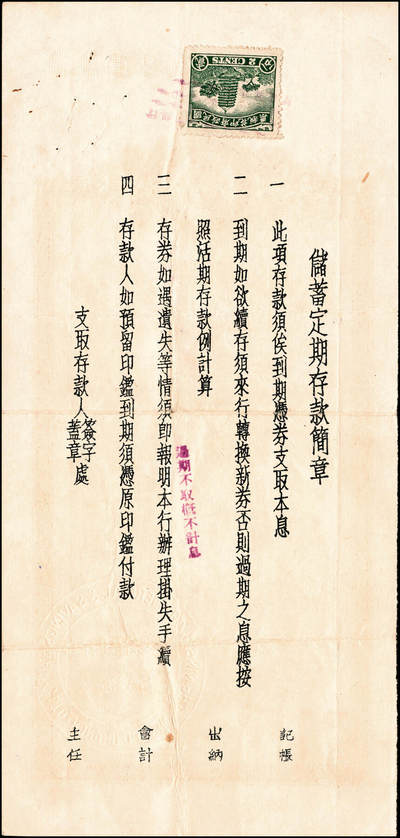 儲蓄定期存款簡章
一 此項存款須俟到期憑券支取本息
二 到期如欲續存須來行轉換新券否則過期之息應按
照活期存款例計算
三 存券如遇遺失等情須卽報明本行辦理掛失手續
四 存款人如預留印鑑到期須憑原印鑑付款
支取存款人簽字蓋章處
過期不取概不計息
記帳
出納
會計
主任
國民政府印花稅票
貳 分
2 CENTS